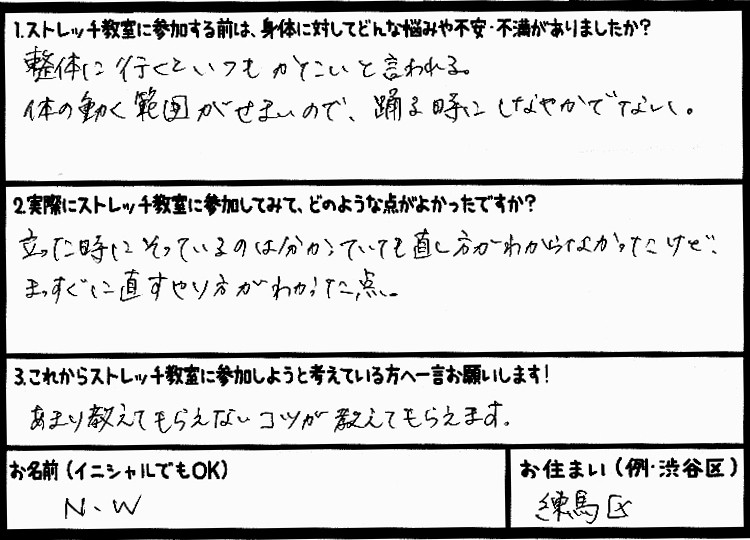 1.ストレッチ教室に参加する前は、身体に対してどんな悩みや不安・不満がありましたか?
整体に行くといつもかたいと言われる。
体の動く範囲がせまいので、踊る時にしなやかでない。
2.実際にストレッチ教室に参加してみて、どのような点がよかったですか?
立った時にそっているのは分かっていても直し方がわからなかったけど、
まっすぐに直すやり方がわかった点。
3.これからストレッチ教室に参加しようと考えている方へ一言お願いします!
あまり教えてもらえないコツが教えてもらえます。
お名前(イニシャルでもOK)
N.W
お住まい(例・渋谷区)
練馬区